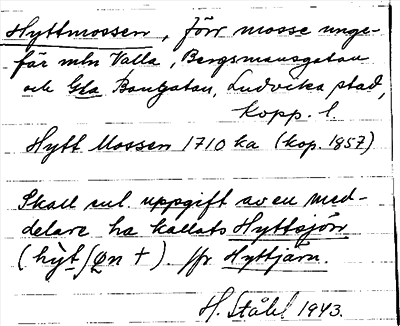 Hyttmossen, förr mosse unge-
fär mln Valla, Bergsmansgatan
och Gla Bangatan, Ludvika stad,
Kopp. l.
Hytt Mossen 1710 ka (kop. 1857)
Skall enl. uppgift av en med-
delare ha kallats Hyttsjön
(hỳt/ʃøn †). jfr Hyttjärn.
H. Ståhl 1943.